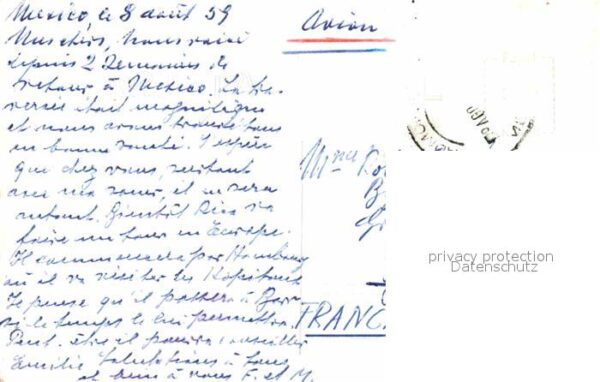 Mexico, le 8 août 59
Mes chers, nous voici
depuis 2 semaines de
retour à Mexico. La tra-
versée était magnifique
et nous avons trouvé tous
en bonne santé. J'espère
que chez vous, surtout
avec ma sœur, il en sera
autant. Bientôt Rico va
faire un tour en Europe.
Il commencera par Hambourg
où il va visiter les
Je pense qu'il passera à
si le temps le lui permettra.
Peut-être il pourra conseiller
Emilie. Salutations à tous
et bons à vous F. et M.
Avion
Mme
FRANC
privacy protection
Datenschutz